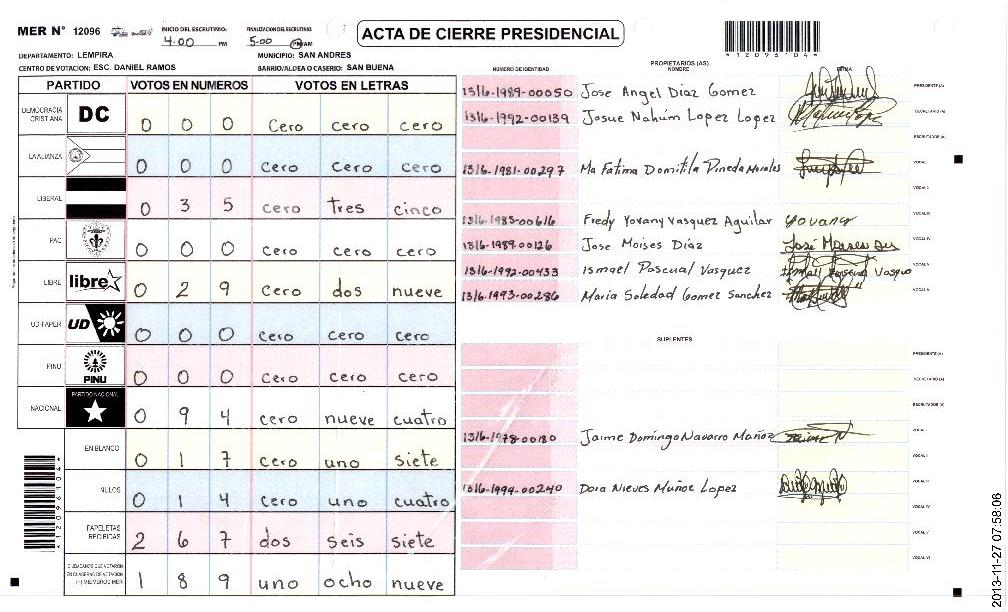 MER N° 12096
INICIO DEL ESCRUTINIO:
4:00 PM
FINALIZACION DEL ESCRUTINIO
5:00 PM/AM
ACTA DE CIERRE PRESIDENCIAL
*1209610 4*
DEPARTAMENTO: LEMPIRA
MUNICIPIO: SAN ANDRES
CENTRO DE VOTACION: ESC. DANIEL RAMOS
BARRIO/ALDEA O CASERIO: SAN BUENA
PARTIDO VOTOS EN NUMEROS VOTOS EN LETRAS
DEMOCRACIA CRISTIANA DC 0 0 0 Cero cero cero
LA ALIANZA 0 0 0 cero cero cero
LIBERAL 0 3 5 cero tres cinco
PAC 0 0 0 cero cero cero
LIBRE libre 0 2 9 cero dos nueve
UD-FAPER UD 0 0 0 cero cero cero
PINU PINU 0 0 0 cero cero cero
NACIONAL PARTIDO NACIONAL 0 9 4 cero nueve cuatro
EN BLANCO 0 1 7 cero uno siete
NULOS 0 1 4 cero uno cuatro
PAPELETAS RECIBIDAS 2 6 7 dos seis siete
CIUDADANOS QUE VOTARON EN CUADERNO DE VOTACION (+) MIEMBROS MER 1 8 9 uno ocho nueve
PROPIETARIOS (AS)
NUMERO DE IDENTIDAD NOMBRE FIRMA
1316-1989-00050 Jose Angel Diaz Gomez PRESIDENTE (A)
1316-1992-00139 Josue Nahúm Lopez Lopez SECRETARIO (A)
ESCRUTADOR (A)
1316-1981-00297 Ma Fatima Domitila Pineda Morales VOCAL I
VOCAL II
1316-1985-00616 Fredy Yovany Vasquez Aguilar yovany VOCAL III
1316-1989-00126 Jose Moises Diaz Jose Moises Dias VOCAL IV
1316-1992-00433 Ismael Pascual Vasquez Ismael Pascual Vasque VOCAL V
1316-1993-00286 Maria Soledad Gomez Sanchez VOCAL VI
SUPLENTES
PRESIDENTE (A)
SECRETARIO (A)
ESCRUTADOR (A)
1316-1978-00180 Jaime Domingo Navarro Muñoz VOCAL I
VOCAL II
1316-1994-00240 Dora Nieves Muñoz Lopez VOCAL III
VOCAL IV
VOCAL V
VOCAL VI
2013-11-27 07:58:06